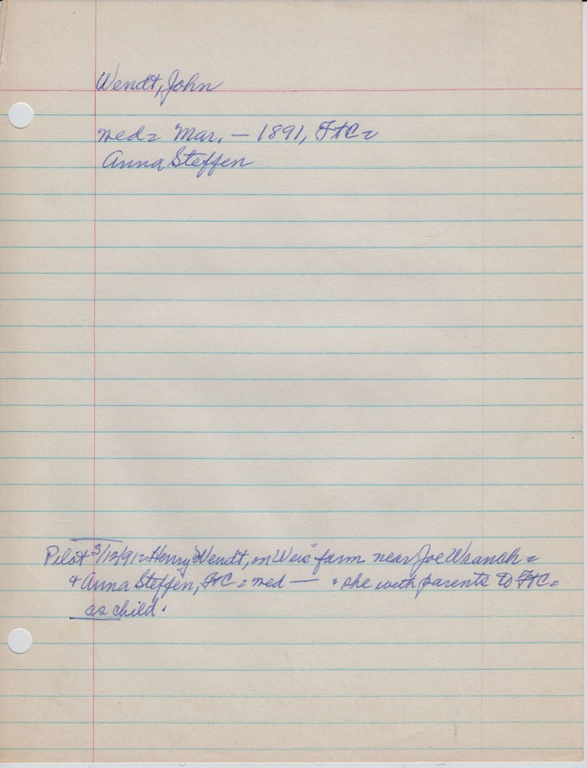 Wendt, John
wed = Mar. — 1891, FtC =
Anna Steffen
Pilot 3/12/91 = Henry Wendt, on Weis farm near Joe Wranch =
& Anna Steffen, FtC = wed — she with parents to FtC =
as child.